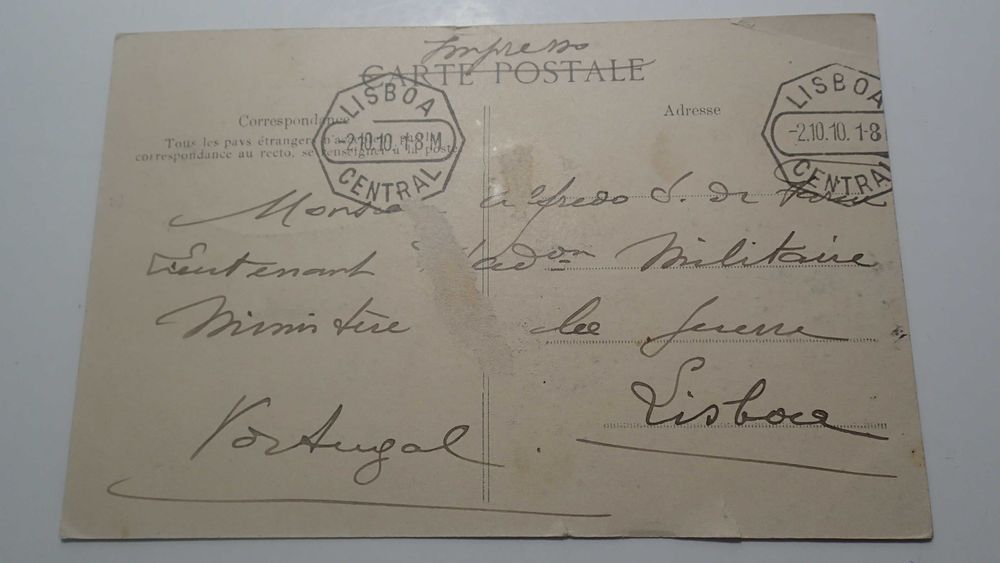 Impresso
CARTE POSTALE
LISBOA
-2.10.10. 1-8 M
CENTRAL
LISBOA
-2.10.10. 1-8
CENTRAL
Correspondance
Tous les pays étrangers la
correspondance au recto, se renseigner à la poste
Adresse
Alfredo de
Lieutenant l'adon Militaire
Ministère de Guerre
Lisboa
Portugal